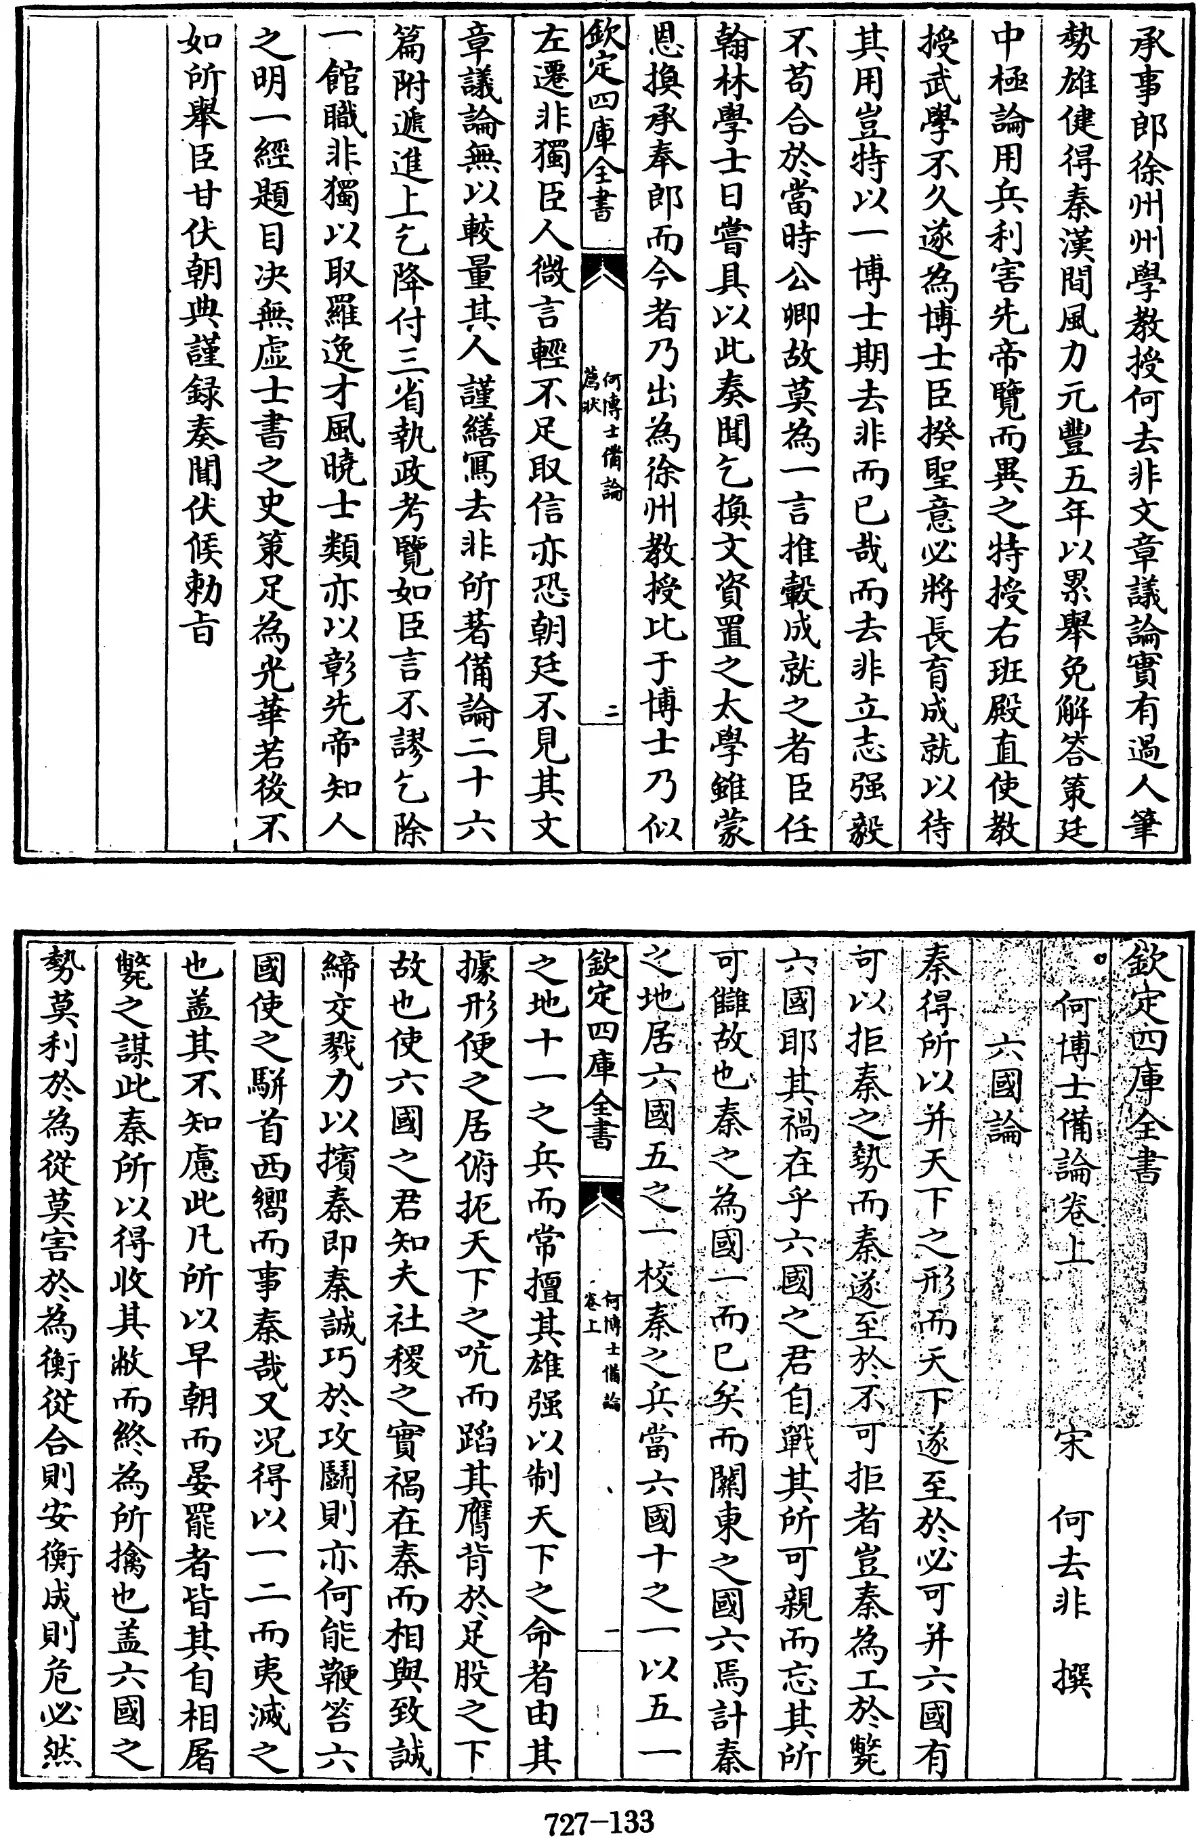 承事郎徐州州學教授何去非文章議論實有過人筆
勢雄健得秦漢間風力元豐五年以累舉免解答策廷
中極論用兵利害先帝覽而異之特授右班殿直使教
授武學不久遂為博士臣揆聖意必將長育成就以待
其用豈特以一博士期去非而已哉而去非立志强毅
不苟合於當時公卿故莫為一言推轂成就之者臣任
翰林學士日嘗具以此奏聞乞換文資置之太學雖蒙
恩換承奉郎而今者乃出為徐州教授比于博士乃似
欽定四庫全書
何博士備論
薦狀
二
左遷非獨臣人微言輕不足取信亦恐朝廷不見其文
章議論無以較量其人謹繕寫去非所著備論二十六
篇附遞進上乞降付三省執政考覽如臣言不謬乞除
一館職非獨以取羅逸才風曉士類亦以彰先帝知人
之明一經題目决無虛士書之史策足為光華若後不
如所舉臣甘伏朝典謹録奏聞伏候勅旨
欽定四庫全書
何博士備論卷上
宋 何去非 撰
六國論
秦得所以并天下之形而天下遂至於必可并六國有
可以拒秦之勢而秦遂至於不可拒者豈秦為工於斃
六國耶其禍在乎六國之君自戰其所可親而忘其所
可讎故也秦之為國一而已矣而關東之國六焉計秦
之地居六國五之一校秦之兵當六國十之一以五一
欽定四庫全書
何博士備論
卷上
一
之地十一之兵而常擅其雄强以制天下之命者由其
據形便之居俯扼天下之吭而蹈其膺背於足股之下
故也使六國之君知夫社稷之實禍在秦而相與致誠
締交戮力以擯秦即秦誠巧於攻鬭則亦何能鞭笞六
國使之駢首西嚮而事秦哉又况得以一二而夷滅之
也盖其不知慮此凡所以早朝而晏罷者皆其自相屠
斃之謀此秦所以得收其敝而終為所擒也盖六國之
勢莫利於為從莫害於為衡從合則安衡成則危必然
727-133